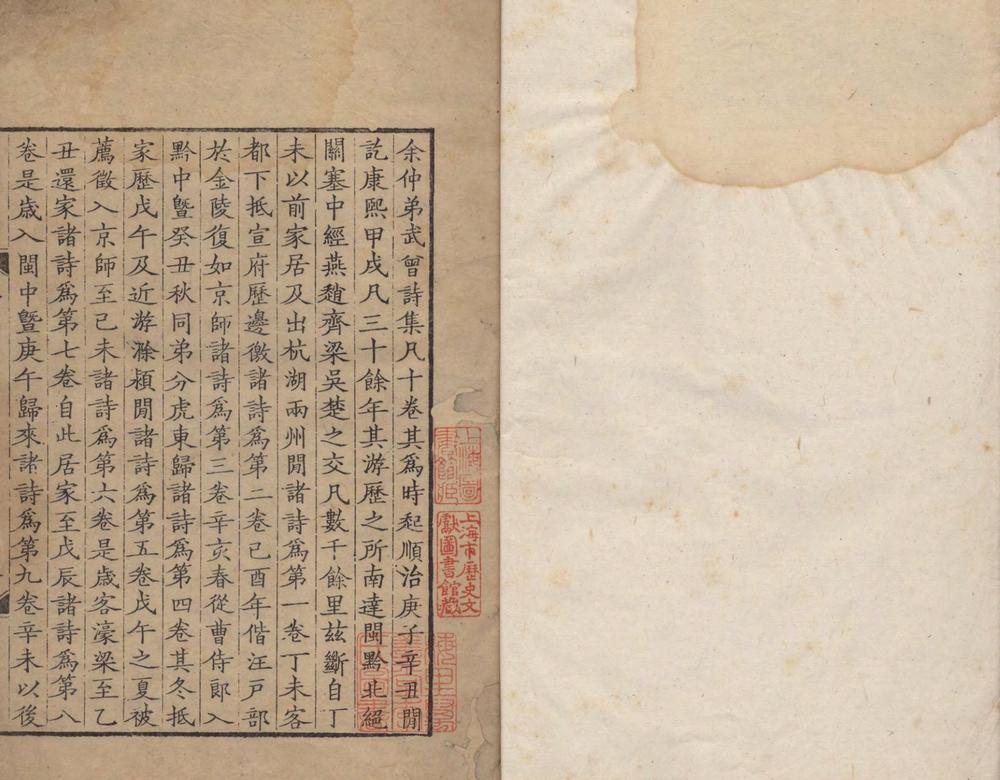 余仲弟武曾詩集凡十卷其爲時起順治庚子辛丑閒
訖康熙甲戌凡三十餘年其游歷之所南達閩黔北絕
關塞中經燕趙齊梁吳楚之交凡數千餘里茲斷自丁
未以前家居及出杭湖兩州閒諸詩爲第一卷丁未客
都下抵宣府歷邊徼諸詩爲第二卷已酉年偕汪戸部
於金陵復如京師諸詩爲第三卷辛亥春從曹侍郎入
黔中曁癸丑秋同弟分虎東歸諸詩爲第四卷其冬抵
家歷戊午及近游滁潁閒諸詩爲第五卷戊午之夏被
薦徵入京師至己未諸詩爲第六卷是歲客濠梁至乙
丑還家諸詩爲第七卷自此居家至戊辰諸詩爲第八
卷是歲入閩中曁庚午歸來諸詩爲第九卷辛未以後
上海市歷史文
獻圖書館藏